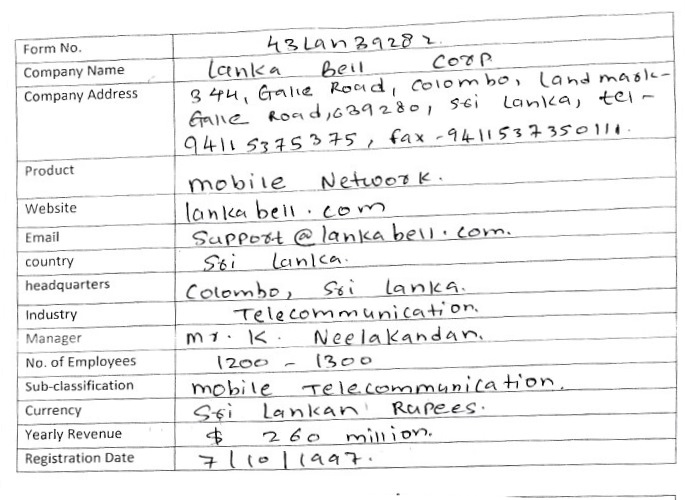 Form No. 43Lan39282.
Company Name Lanka Bell Corp
Company Address 344, Galle Road, Colombo, Landmark-
Galle Road, 639280, Sri Lanka, tel -
94115375375, fax -9411537350111.
Product mobile Network.
Website lankabell.com
Email Support@lankabell.com.
country Sri Lanka.
headquarters Colombo, Sri Lanka.
Industry Telecommunication.
Manager mr. K. Neelakandan.
No. of Employees 1200 - 1300
Sub-classification mobile Telecommunication.
Currency Sri Lankan Rupees.
Yearly Revenue $ 260 million.
Registration Date 7|10|1997.